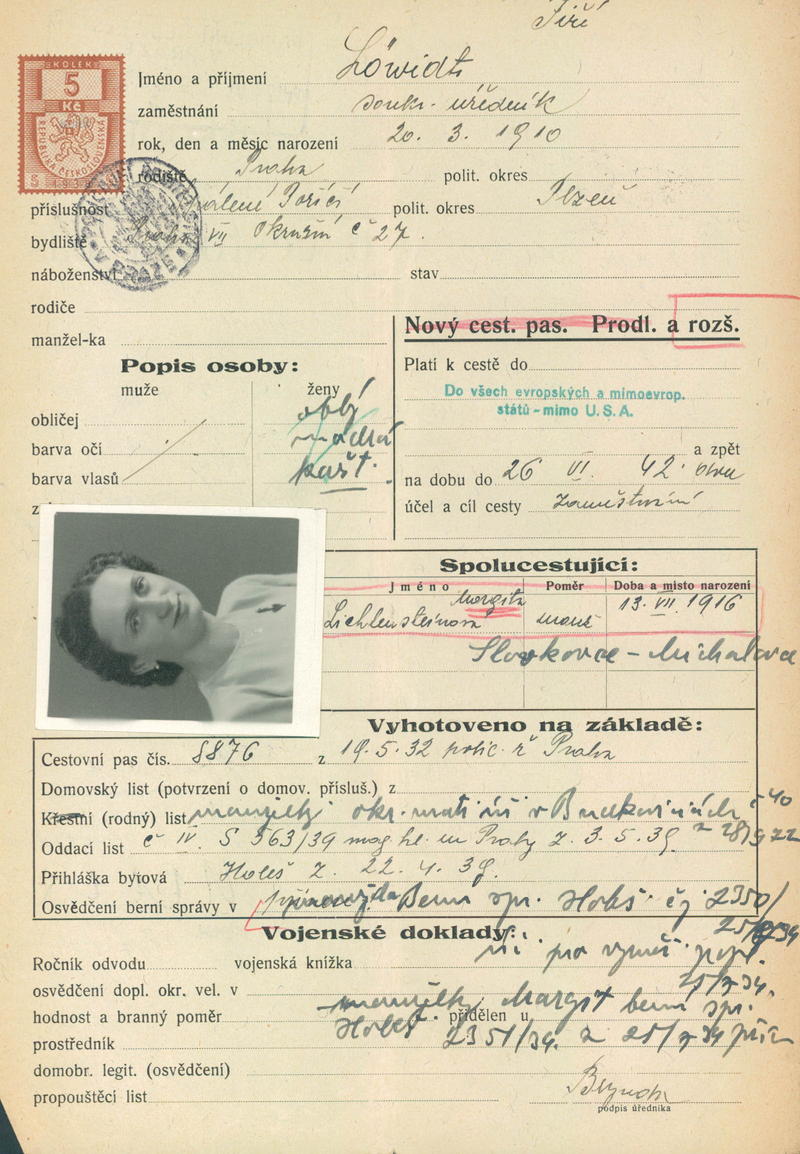 Jiří
KOLEK
5
Kč
REPUBLIKA ČESKOSLOVENSKÁ
Jméno a příjmení Löwidt
zaměstnání soukr. úředník
rok, den a měsíc narození 20. 3. 1910
rodiště Praha polit. okres
příslušnost Poříčí polit. okres Plzeň
bydliště Praha VII Okružní č 27.
náboženství stav
rodiče
manžel-ka
Nový cest. pas. Prodl. a rozš.
Popis osoby:
muže ženy
obličej oblý
barva očí modrá
barva vlasů kašt.
Platí k cestě do
Do všech evropských a mimoevrop.
států - mimo U. S. A.
a zpět
na dobu do 26 VI. 42
účel a cíl cesty zaměstnání
Spolucestující:
Jméno Poměr Doba a místo narození
Margita
Lichtensteinová manž 13. VII. 1916
Slovkovce - Michalovce
Vyhotoveno na základě:
Cestovní pas čís. 8876 z 19. 5. 32 polic. ř Praha
Domovský list (potvrzení o domov. přísluš.) z
Křestní (rodný) list manželky okr. v č 40
Oddací list č IV. S 363/39 mag. hl. m Prahy z. 3. 5. 39.
Přihláška bytová Holeš z. 22. 4. 39.
Osvědčení berní správy v Bern spr. Holeš. čj 2350/
Vojenské doklady:
Ročník odvodu vojenská knížka
pro
osvědčení dopl. okr. vel. v
manželky Margit berní spr.
hodnost a branný poměr přidělen u
Holeš 2351/39. z
prostředník
domobr. legit. (osvědčení)
propouštěcí list
podpis úředníka